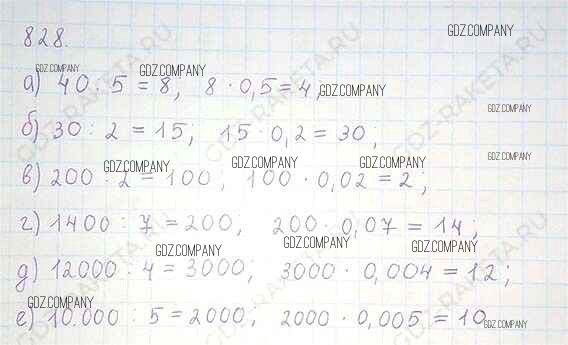 828.
GDZ.COMPANY
GDZ.COMPANY GDZ.COMPANY
а) 40 : 5 = 8; 8 · 0,5 = 4; GDZ.COMPANY
GDZ.COMPANY
б) 30 : 2 = 15; 15 · 0,2 = 30;
GDZ.COMPANY GDZ.COMPANY GDZ.COMPANY GDZ.COMPANY
в) 200 : 2 = 100; 100 · 0,02 = 2;
г) 1400 : 7 = 200; 200 · 0,07 = 14;
GDZ.COMPANY GDZ.COMPANY GDZ.COMPANY
д) 12000 : 4 = 3000; 3000 · 0,004 = 12;
GDZ.COMPANY
е) 10.000 : 5 = 2000; 2000 · 0,005 = 10
GDZ.COMPANY
GDZ-RAKETA.RU